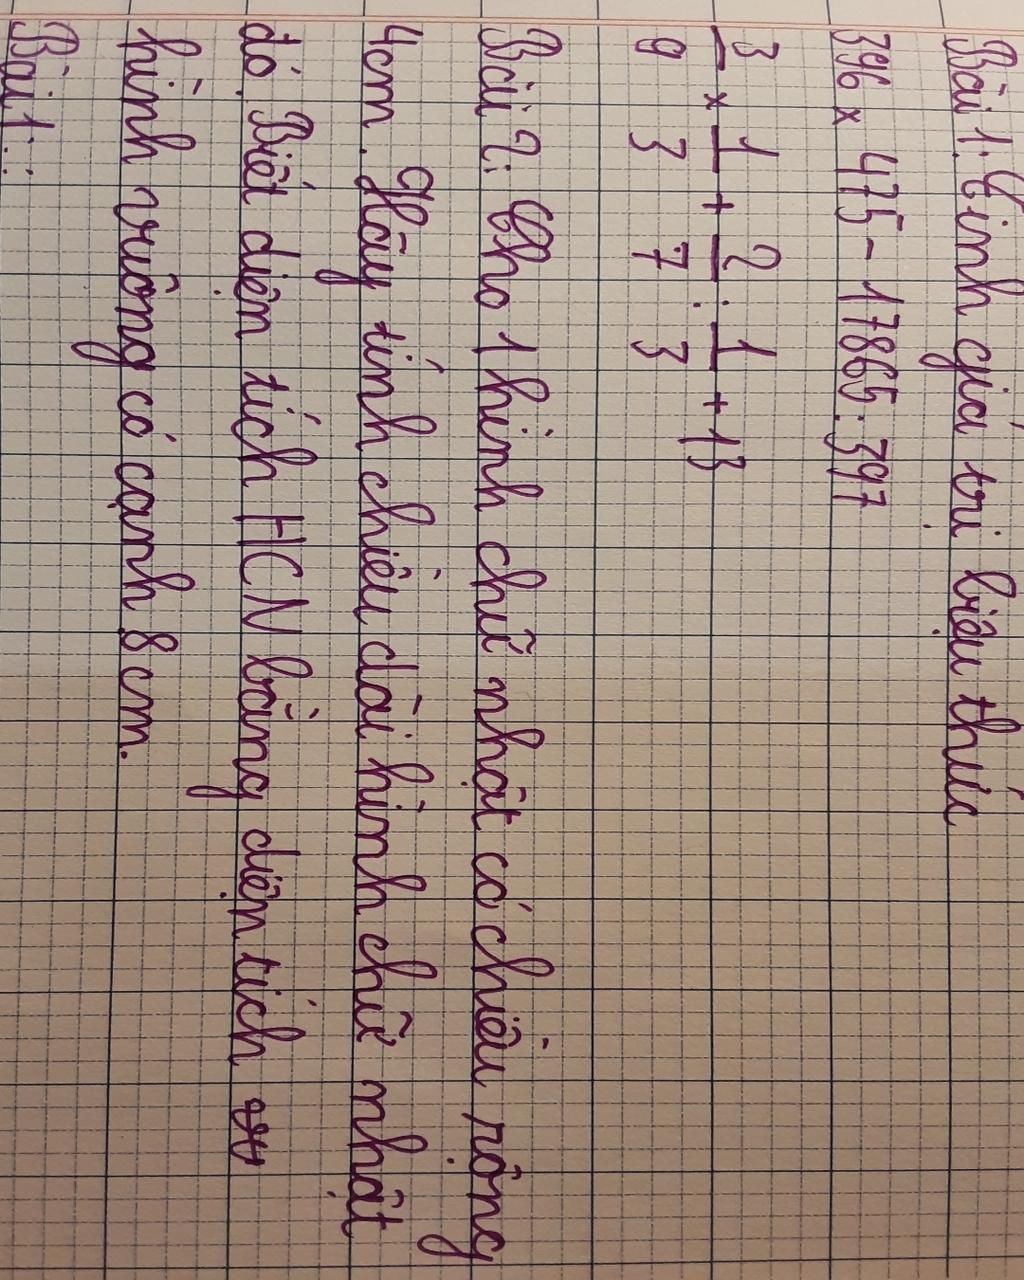 Bài 1: Tính giá trị biểu thức
396 x 475 - 17865 : 397
3/9 x 1/3 + 2/7 : 1/3 + 13
Bài 2: Cho 1 hình chữ nhật có chiều rộng
4cm. Hãy tính chiều dài hình chữ nhật
đó. Biết diện tích HCN bằng diện tích
hình vuông có cạnh 8 cm.
Bài 1: